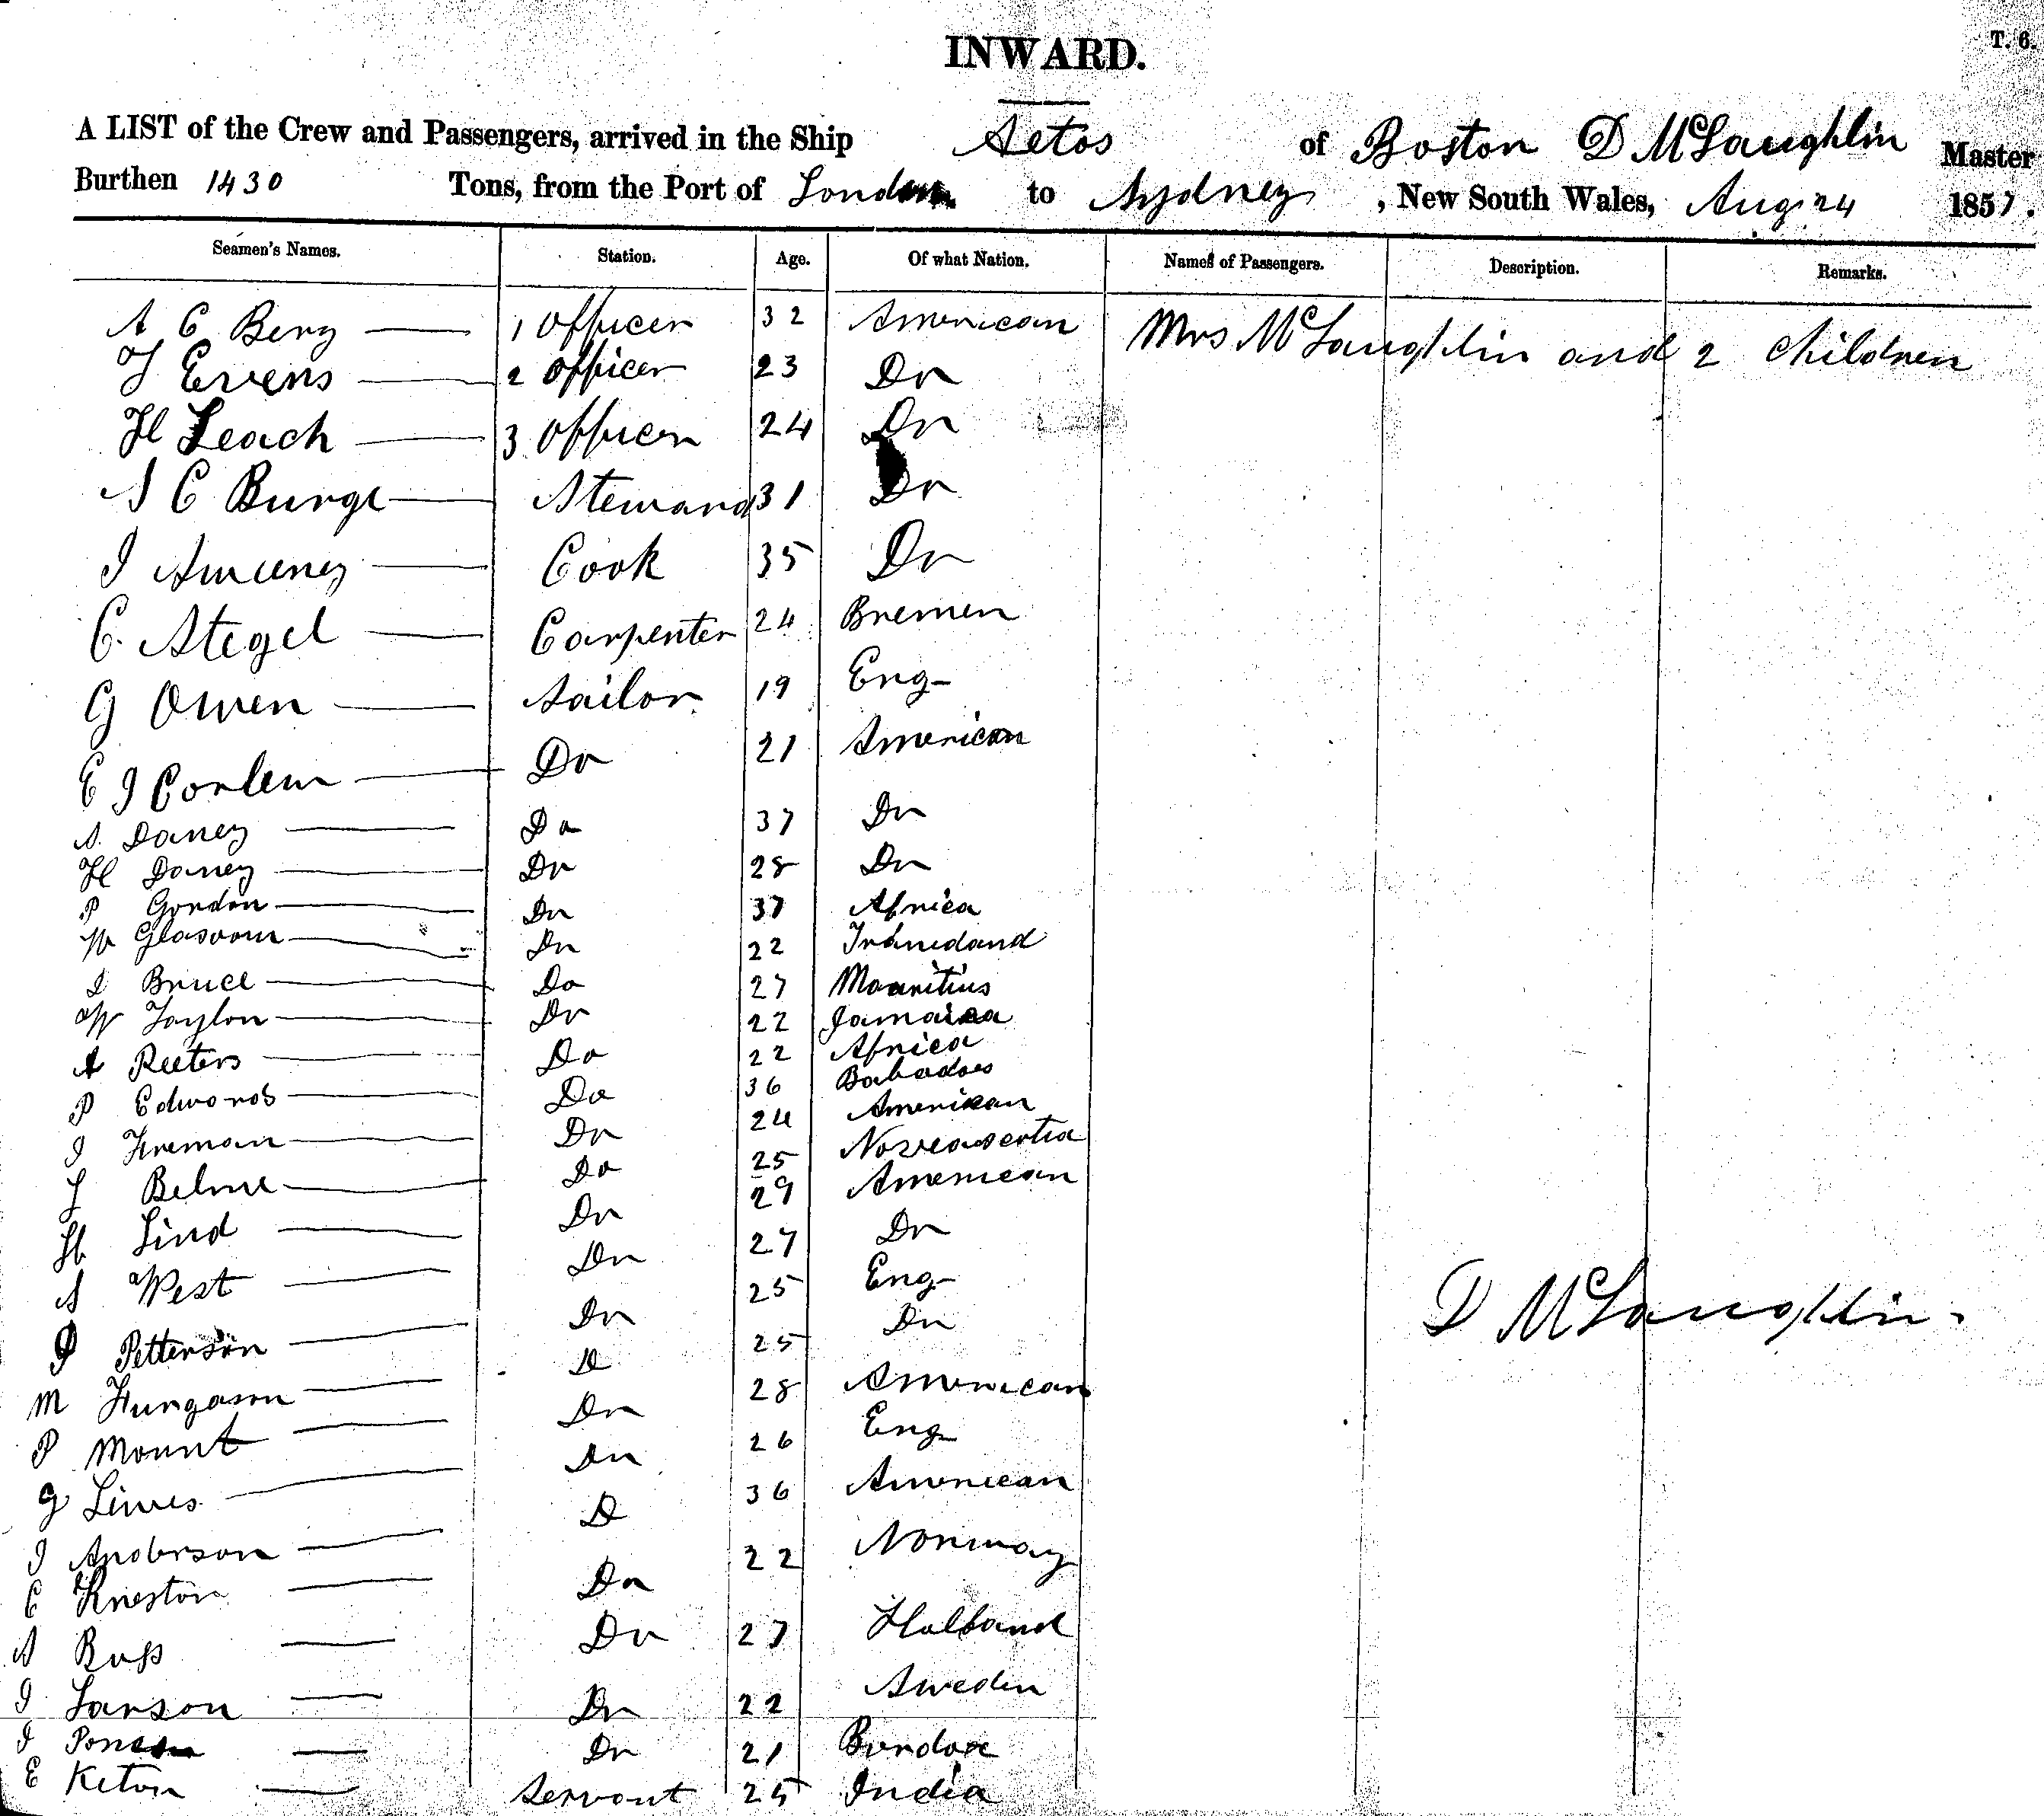 T. 6.
INWARD.
A LIST of the Crew and Passengers, arrived in the Ship Aetos of Boston D McLaughlin Master
Burthen 1430 Tons, from the Port of London to Sydney, New South Wales, Aug 24 1857.
Seamen's Names. Station. Age. Of what Nation. Names of Passengers. Description. Remarks.
A C Berg 1 Officer 32 American Mrs McLaughlin and 2 Children
J Evens 2 Officer 23 Do
H Leach 3 Officer 24 Do
S C Burge Steward 31 Do
J Sweeney Cook 35 Do
C. Stegel Carpenter 24 Bremen
G Owen Sailor 19 Eng-
E J Do 21 American
S. Daney Do 37 Do
H Daney Do 28 Do
P Gordon Do 37 Africa
W Do 22
Bruce Do 27 Mauritius
W Taylor Do 22 Jamaica
A Reeters Do 22 Africa
P Edwards Do 36 Babadoes
J Freman Do 24 American
J Do 25
H Lind Do 29 American
S West Do 27 Do
P Petterson Do 25 Eng-
M Do 25 Do
P Mount Do 28 American
G Do 26 Eng
J Anderson D 36 American
C Do 22 Norway
A Do 27 Holland
J Larson Do 22 Sweden
J Do 21
E Keton Servant 25 India
D McLaughlin.